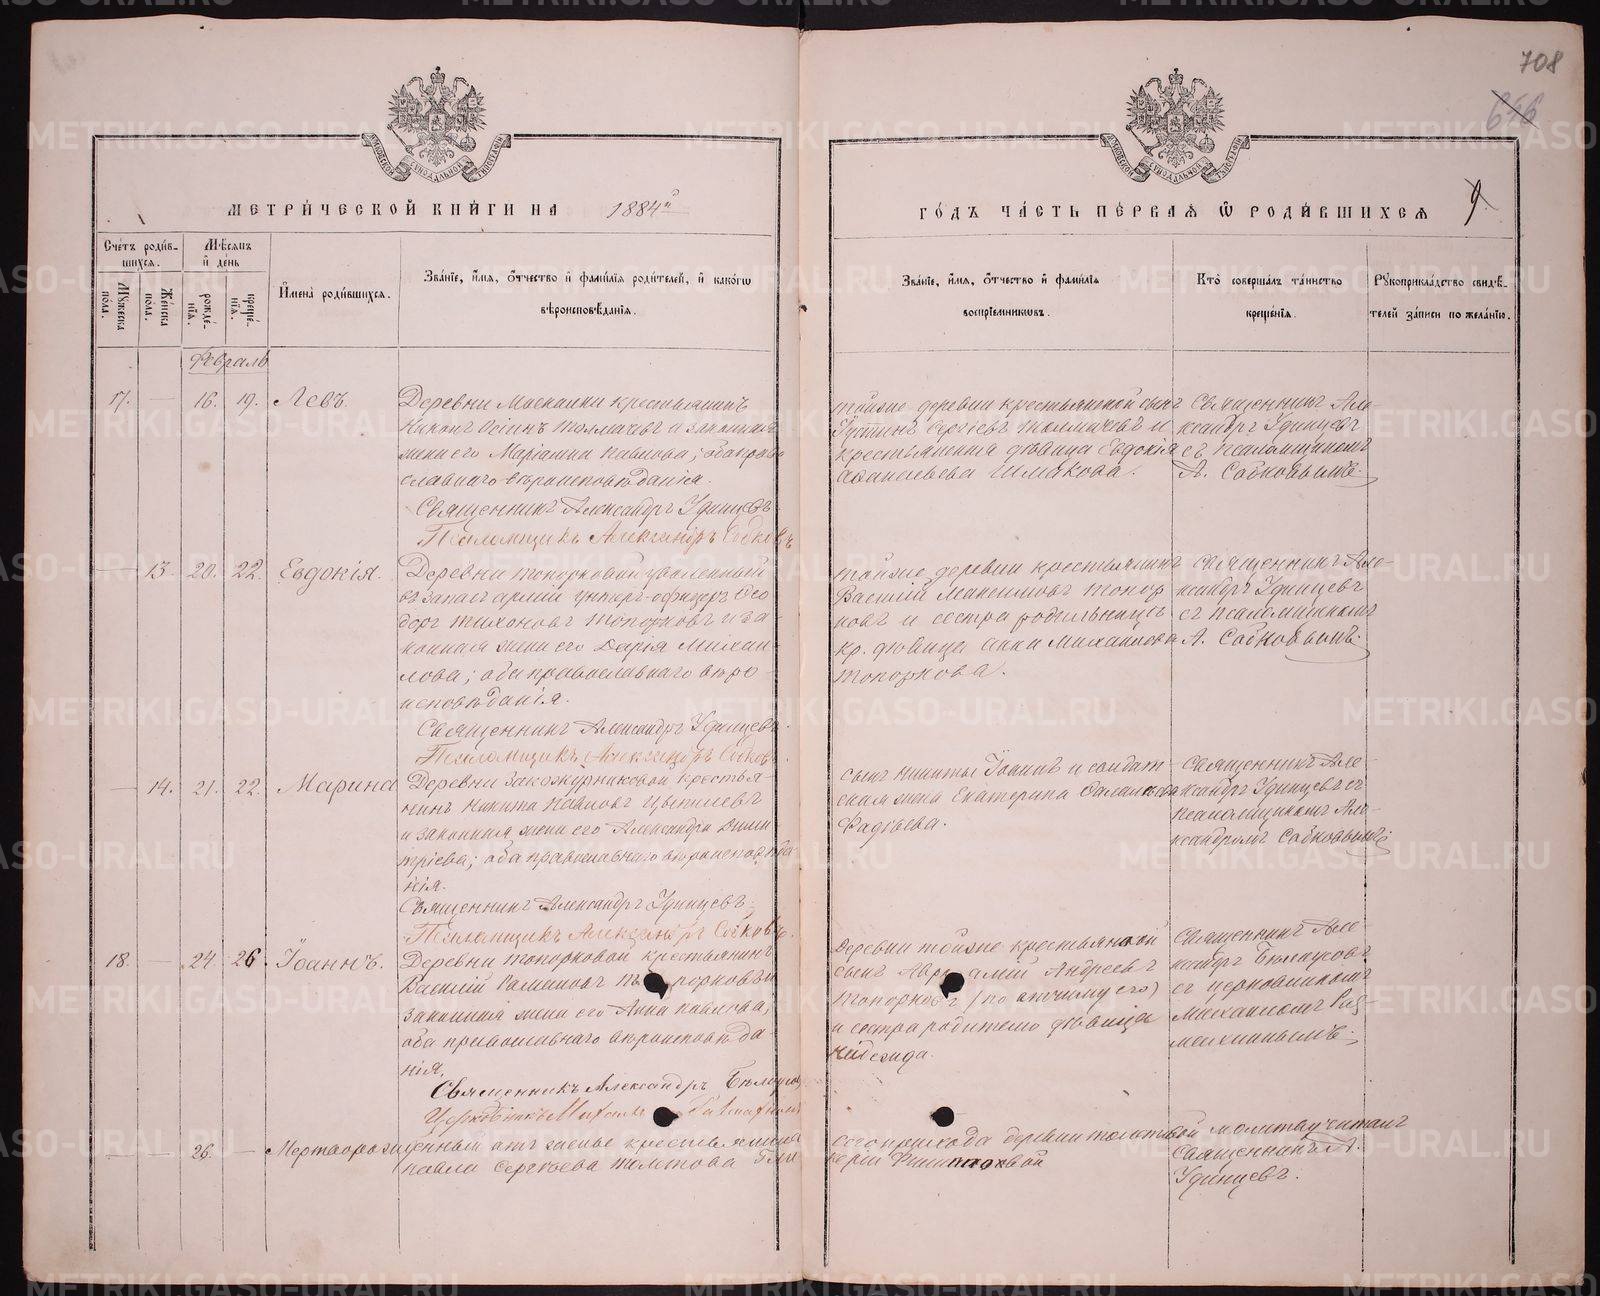 708
646
МЕТРИ́ЧЕСКОЙ КНИ́ГИ НА 1884й
ГО́ДЪ ЧА́СТЬ ПЕ́РВАѦ Ѿ РОДИ́ВШИХСѦ
9
Сче́тъ роди́в-
шихсѧ.
Мѣ́сѧцъ
и҆ де́нь
Мꙋ́жеска
пола.
Же́нска
пола.
рожде́-
нїѧ.
креще́-
нїѧ.
И҆мена̀ роди́вшихсѧ.
Зва́нїе, и҆́мѧ, ѻ҆́тчество и҆ фами́лїѧ роди́телей, и҆ како́гѡ
вѣроисповѣ́данїѧ.
Зва́нїе, и҆́мѧ, ѻ҆́тчество и҆ фами́лїѧ
воспрїе́мникѡвъ.
Кто̀ соверша́лъ та́инство
креще́нїѧ.
Рꙋкоприкла́дство свидѣ́-
телей за́писи по жела́нїю.
Февраль
17. — 16. 19. Левъ.
Деревни крестьянинъ
Осипъ Толмачевъ и законная
жена его Павлова; оба право
славнаго вѣроисповѣданія.
Священникъ Александръ Удинцевъ
Псаломщикъ Александръ Собковъ
тойже деревни крестьянской сынъ
Іустинъ Сергіевъ Толмачевъ и
крестьянская дѣвица Евдокія
Шмакова.
Священникъ Але
ксандръ Удинцевъ
съ псаломщикомъ
А. Собковымъ
— 13. 20. 22. Евдокія.
Деревни Топорковой уволенный
въ запасъ арміи унтеръ-офицеръ Ѳео
доръ Тихоновъ Топорковъ и за
конная жена его Дарія Михаи
лова; оба православнаго вѣро
исповѣданія.
Священникъ Александръ Удинцевъ
Псаломщикъ Александръ Собковъ
тойже деревни крестьянинъ
Василій Максимовъ Топор
ковъ и сестра родильницы
кр. дѣвица Анна Михаилова
Топоркова.
Священникъ Але-
ксандръ Удинцевъ
съ псаломщикомъ
А. Собковымъ
— 14. 21. 22. Марина
Деревни Закожурниковой крестья-
нинъ Никита Павловъ
и законная жена его Александра Дими
тріева; оба православнаго вѣроисповѣда
нія.
Священникъ Александръ Удинцевъ
Псаломщикъ Александръ Собковъ.
сынъ Никиты Іоаннъ и солдат-
ская жена Екатерина
Фадѣева.
Священникъ Але-
ксандръ Удинцевъ съ
псаломщикомъ Але-
ксандромъ Собковымъ
18. — 24. 26 Іоаннъ.
Деревни Топорковой крестьянинъ
Василій Романовъ и
законная жена его Анна Павлова;
оба православнаго вѣроисповѣда-
нія.
Священникъ Александръ Бѣлоусов
Церковникъ Михаилъ
Деревни тойже крестьянской
сынъ Андреевъ
Топорковъ (по отчиму его)
и сестра родителю дѣвица
Надежда.
Священникъ Але
ксандръ Бѣлоусовъ
съ церковникомъ
Михаиломъ
— — 26. — Мертворожденный отъ жены крестьянина
Павла Сергѣева Толстова Гли
сего прихода деревни молитву читалъ
керіи
Священникъ А.
Удинцевъ.
METRIKI.GASO-URAL.RU